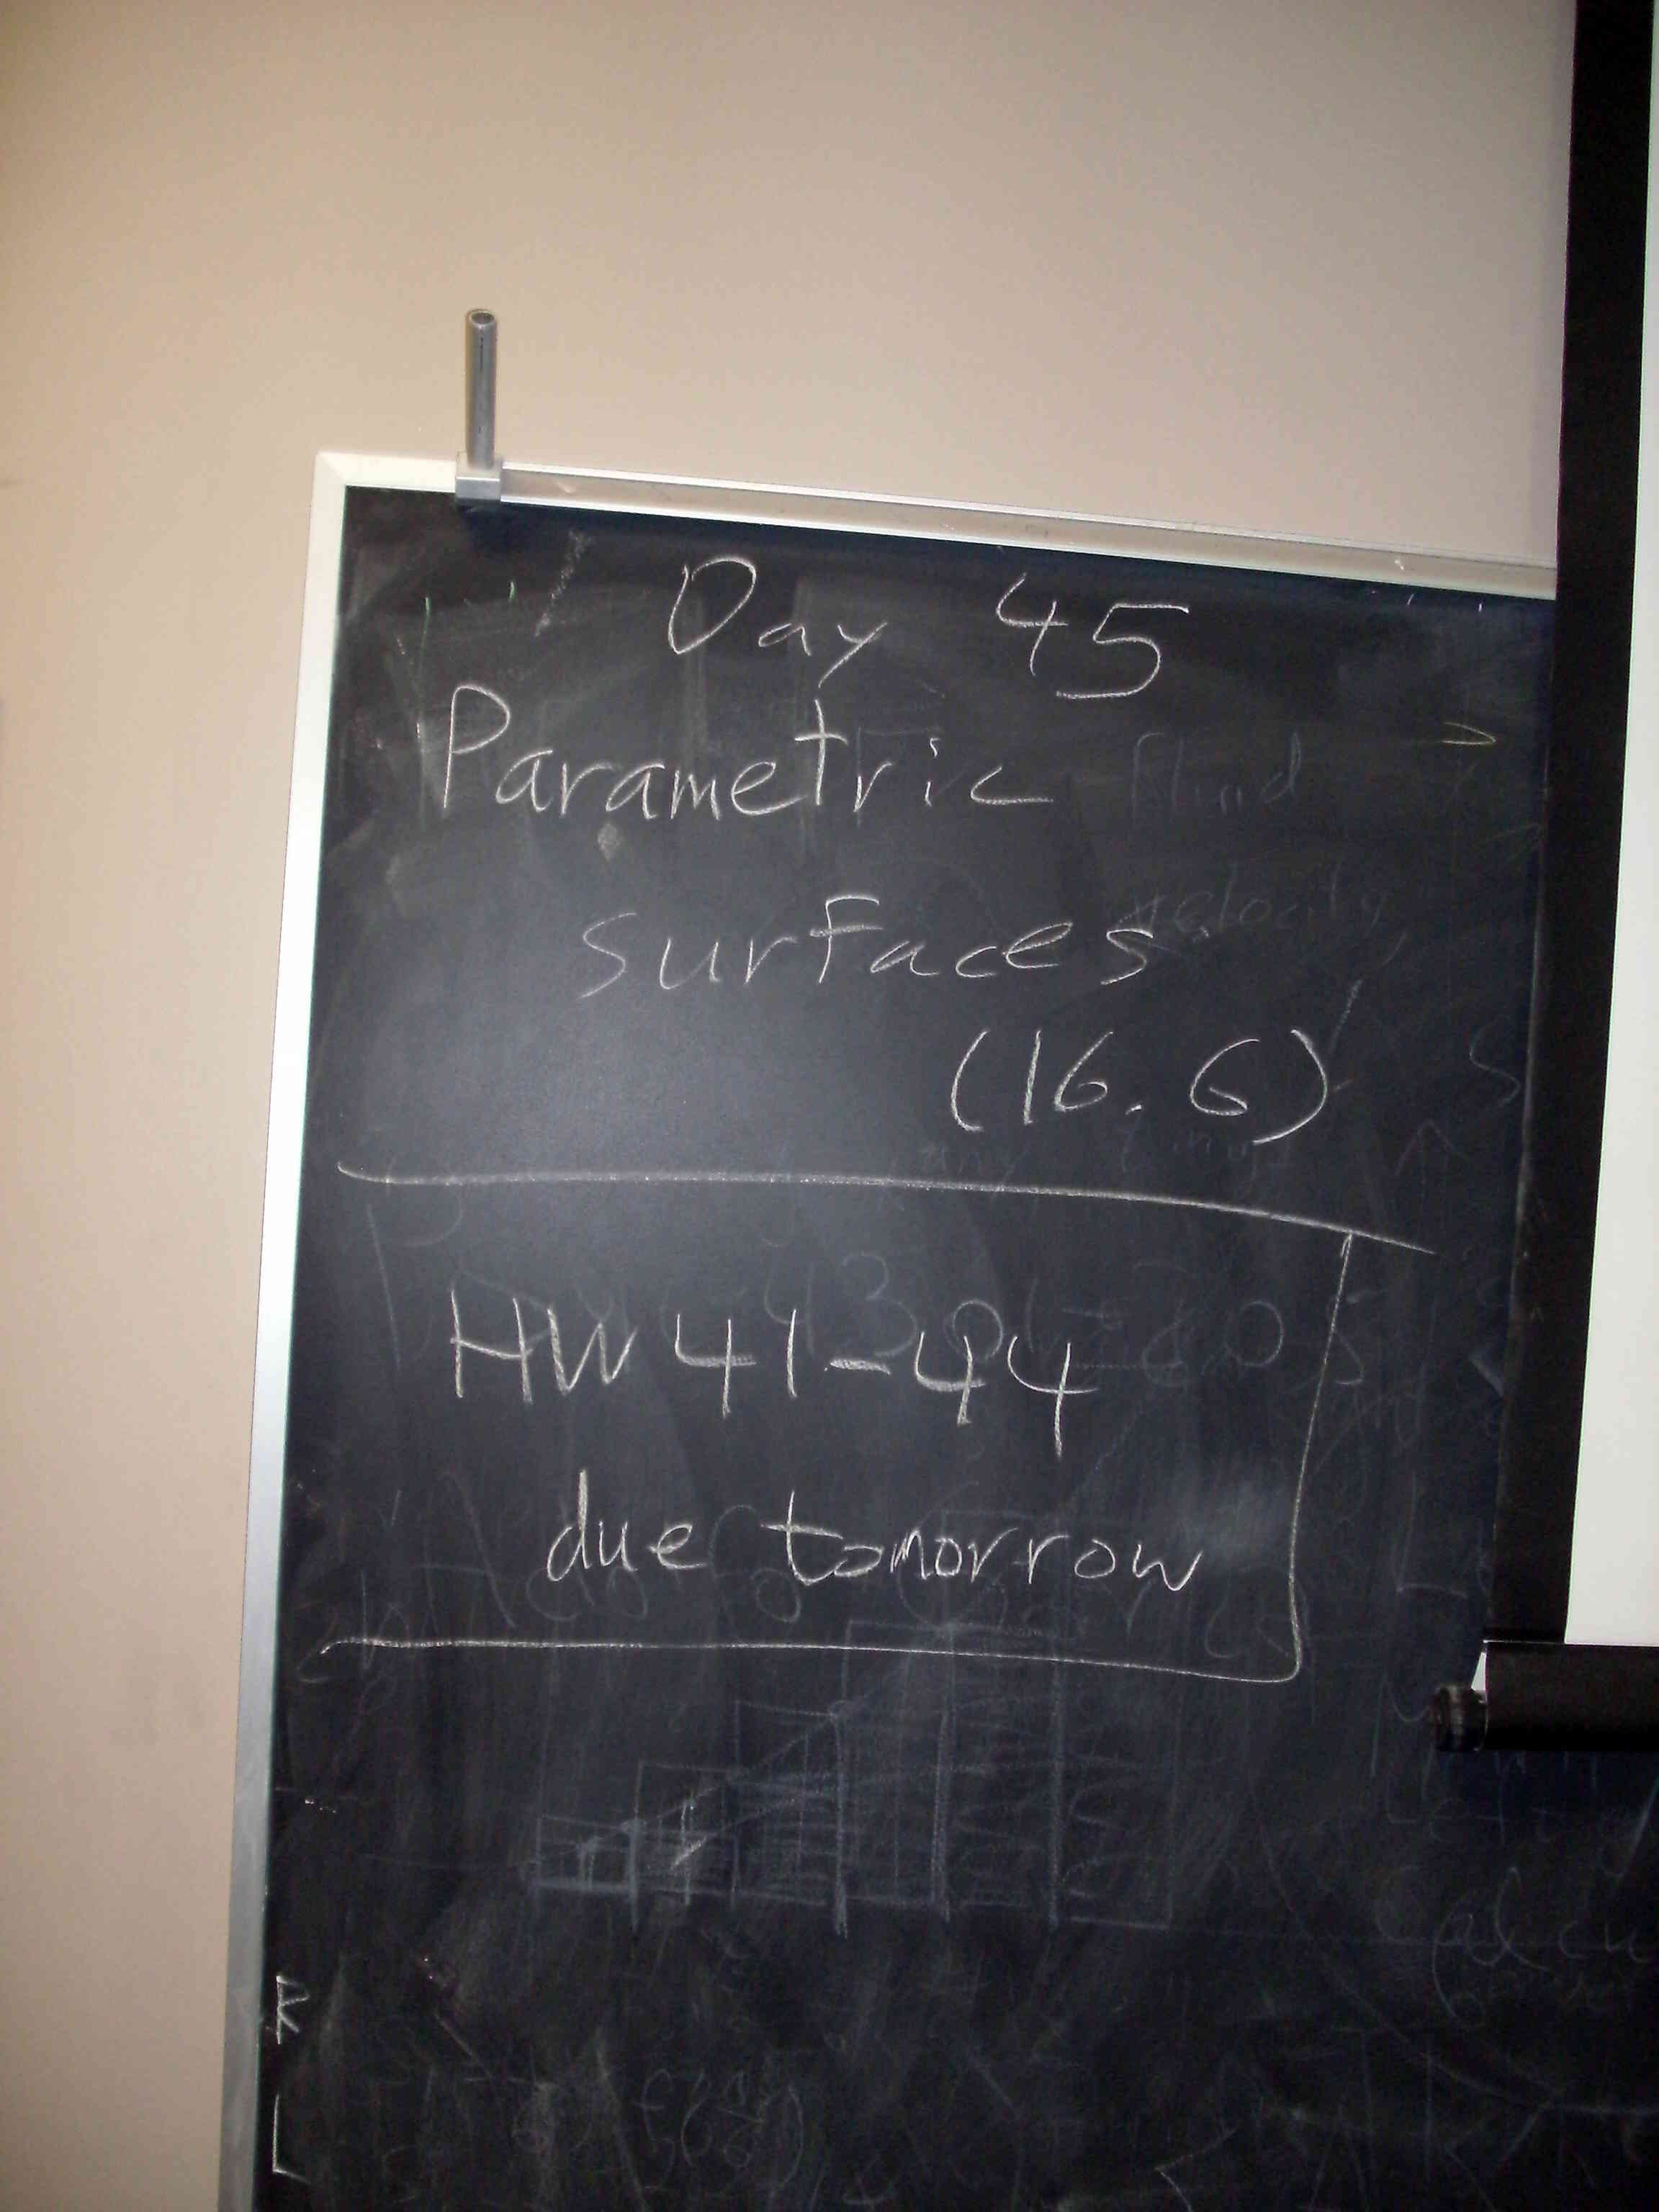 Day 45
Parametric
surfaces
(16.6)
HW 41-44
due tomorrow
R
L